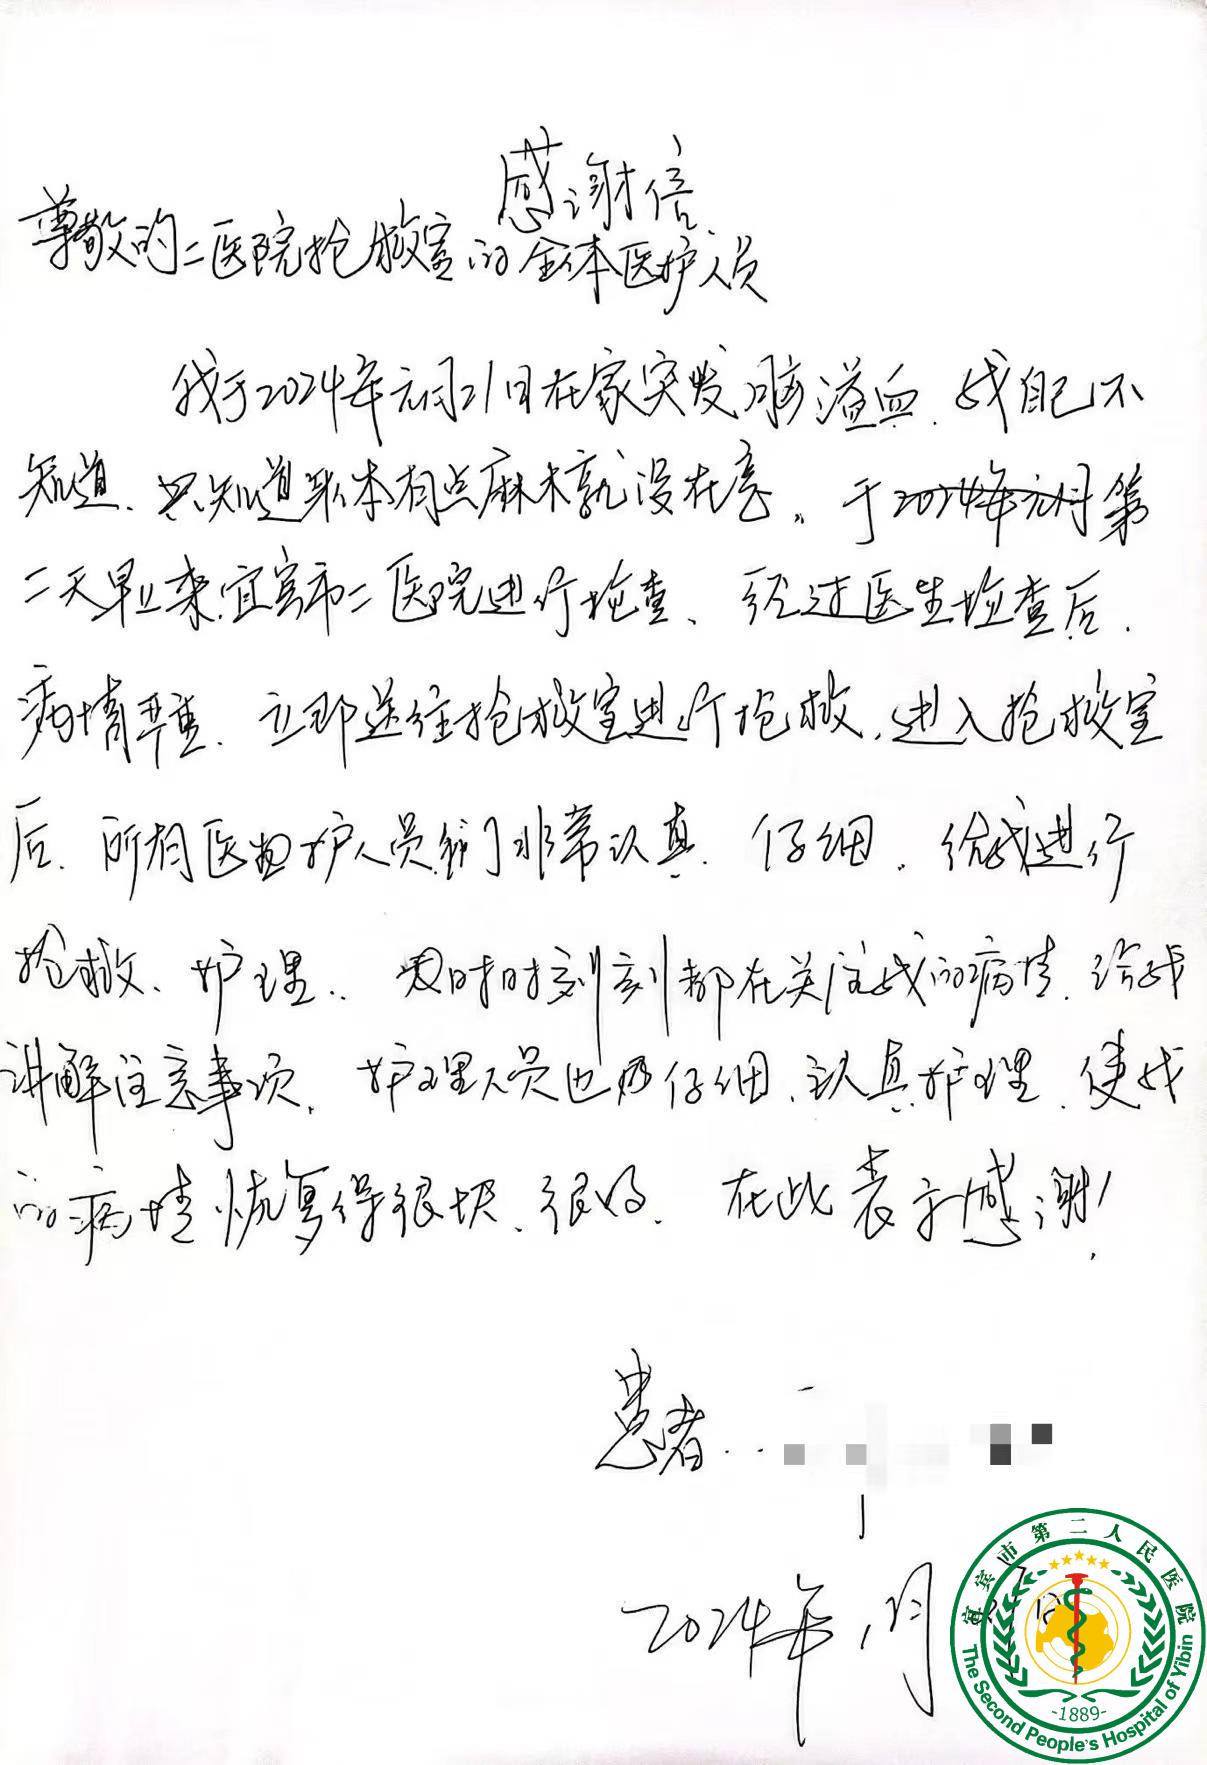 感谢信
尊敬的二医院抢救室的全体医护人员
我于2024年元月21日在家突发脑溢血、我自己不
知道、只知道身体有点麻木就没在意。于2024年元月第
二天早上来宜宾市二医院进行检查、经过医生检查后、
病情严重、立即送往抢救室进行抢救、进入抢救室
后、所有医护人员们非常认真、仔细、给我进行
抢救、护理、时时刻刻都在关注我的病情、给我
讲解注意事项、护理人员也仔细、认真护理、使我
的病情恢复得很快、很好、在此表示感谢!
患者
2024年1月
宜宾市第二人民医院
The Second People's Hospital of Yibin
-1889-